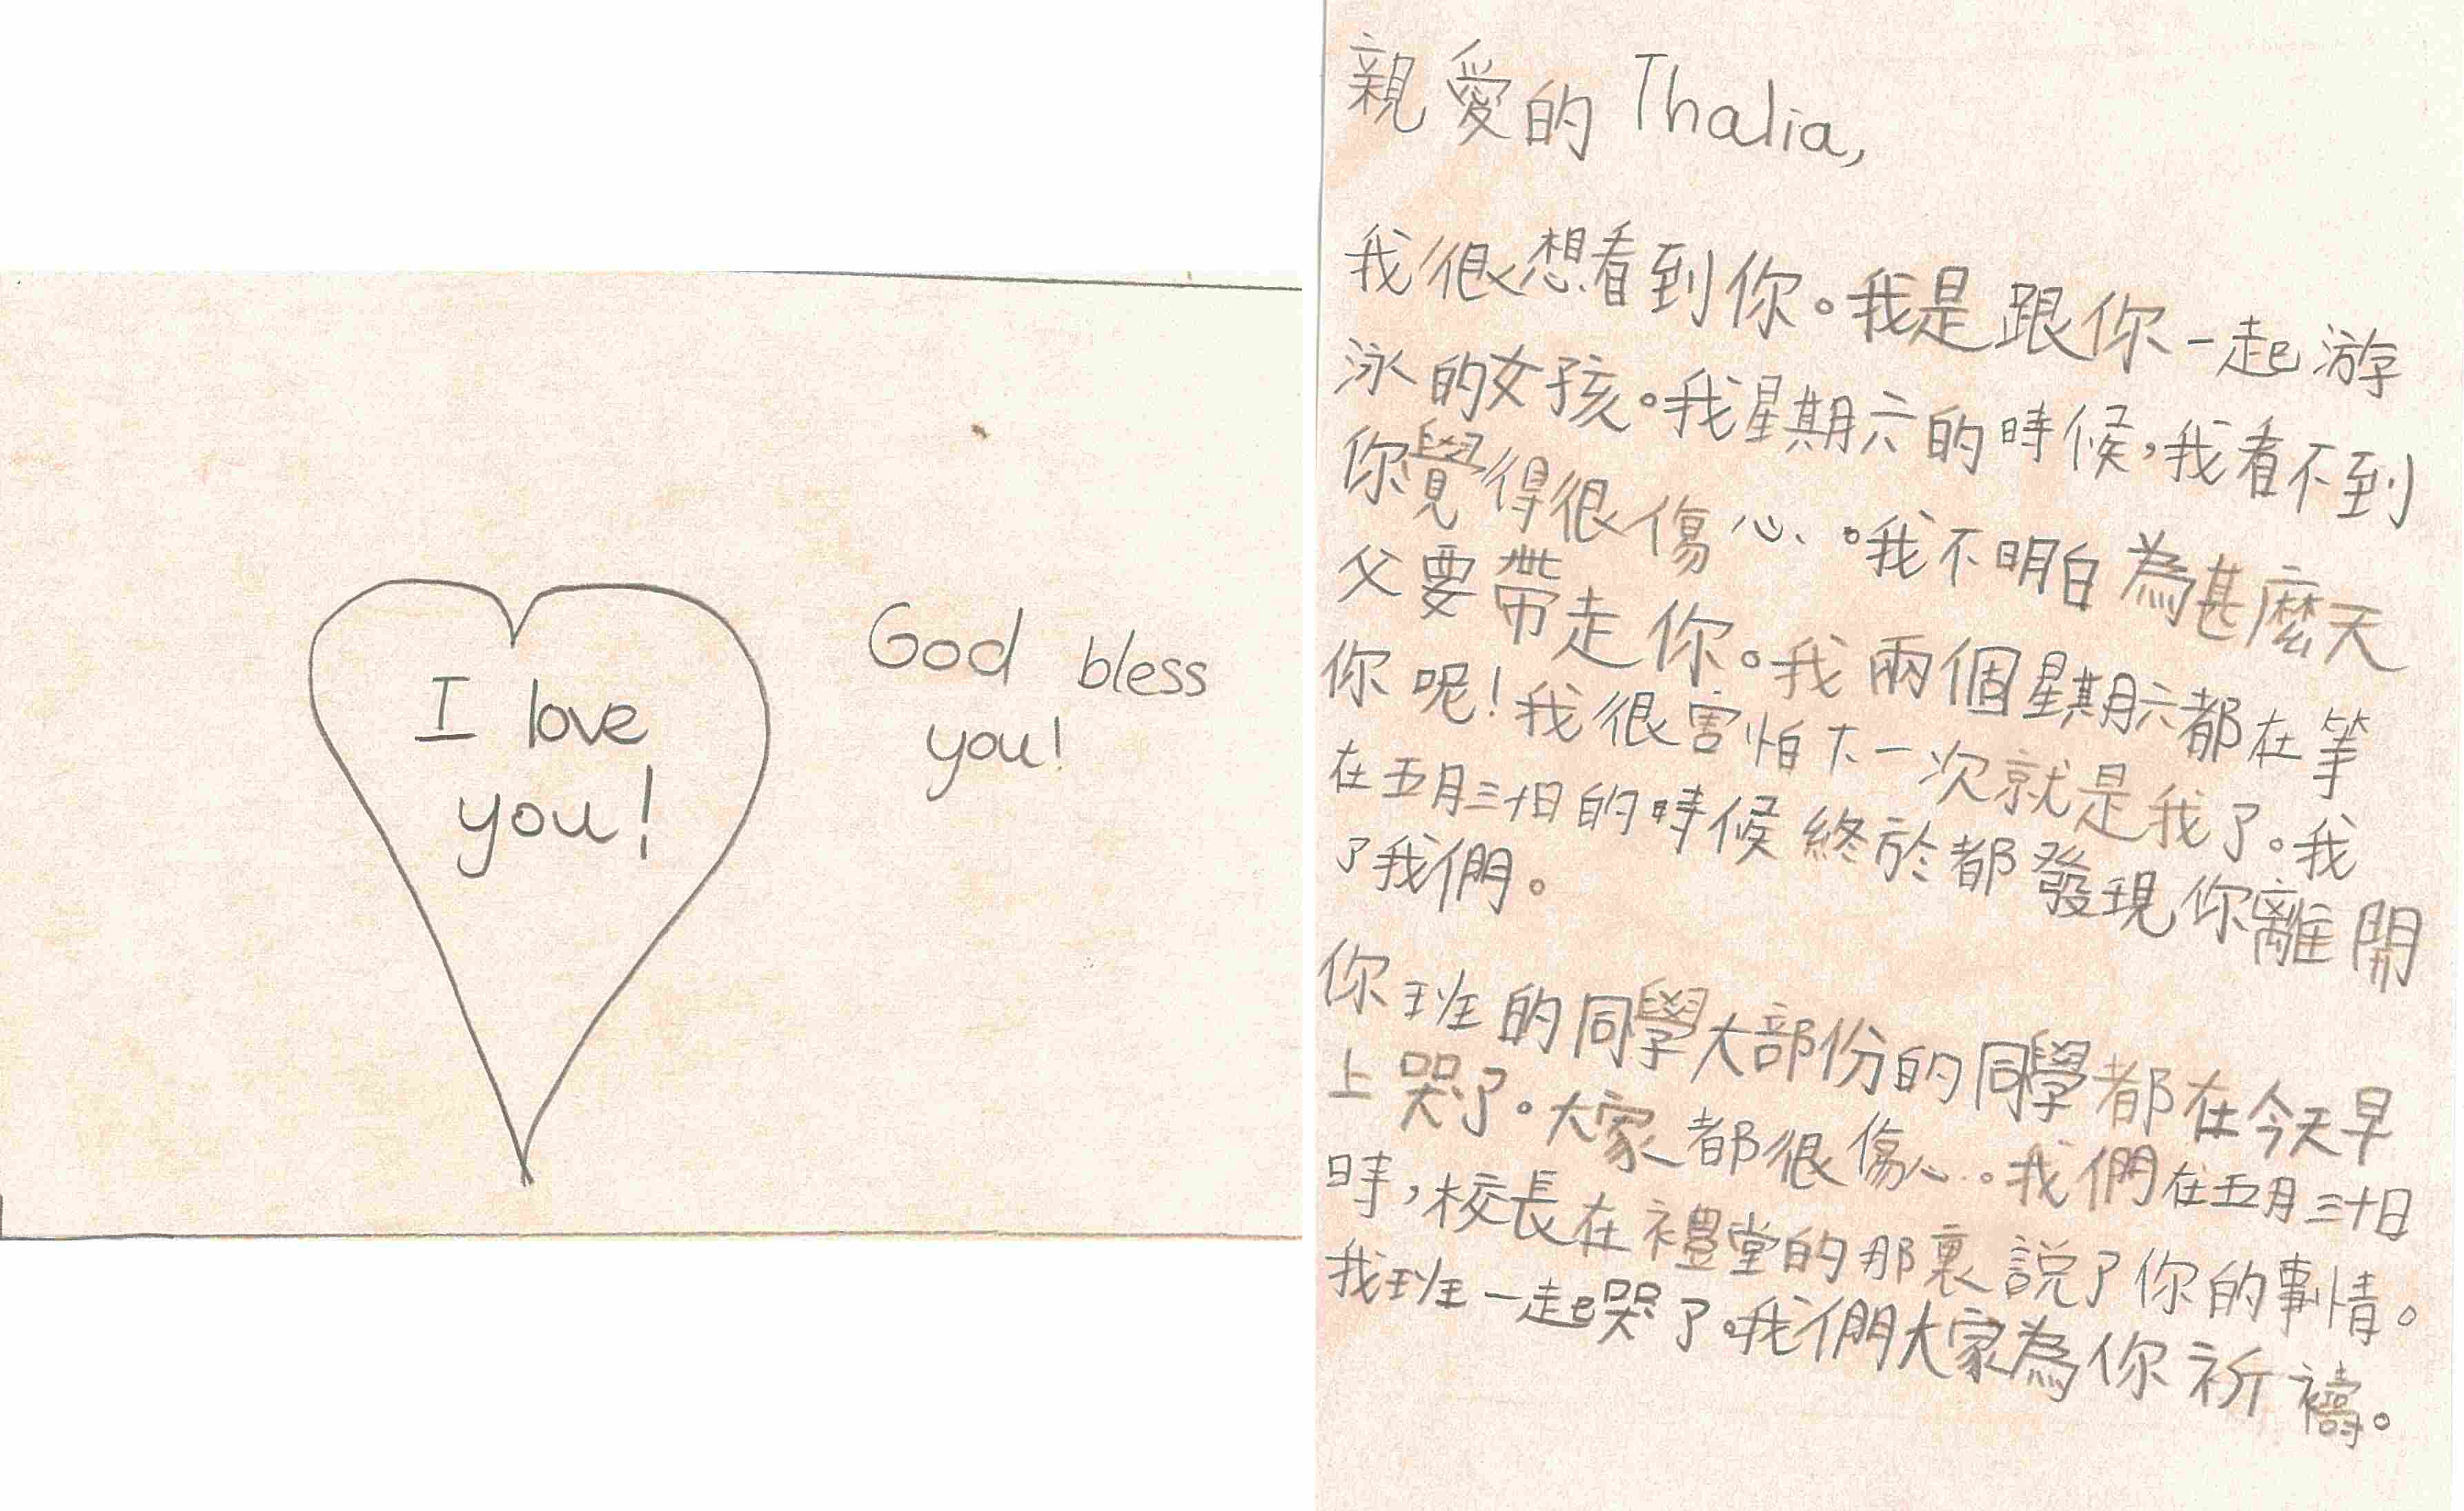 I love
you!
God bless
you!
親愛的 Thalia,
我很想看到你。我是跟你一起游
泳的女孩。我星期六的時候，我看不到
你覺得很傷心。我不明白為甚麼天
父要帶走你。我兩個星期六都在等
你呢！我很害怕下一次就是我了。我
在五月三十日的時候終於都發現你離開
了我們。
你班的同學大部份的同學都在今天早
上哭了。大家都很傷心。我們在五月三十日
時，校長在禮堂的那裏說了你的事情。
我班一起哭了。我們大家為你祈禱。